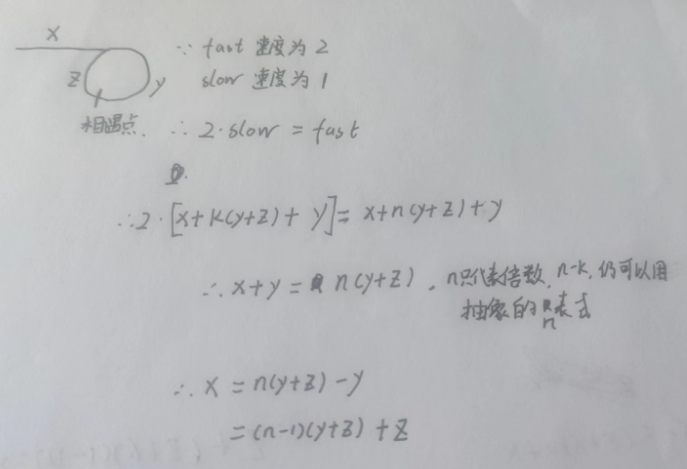 X
Z
y
相遇点.
∵ fast 速度为 2
slow 速度为 1
∴ 2·slow = fast
∴ 2·[x+k(y+z)+ y]= x+n(y+z)+y
∴ x+y = n(y+z) . n只代表倍数, n-k, 仍可以用
抽象的n表示
∴ x = n(y+z) -y
= (n-1)(y+z) + z